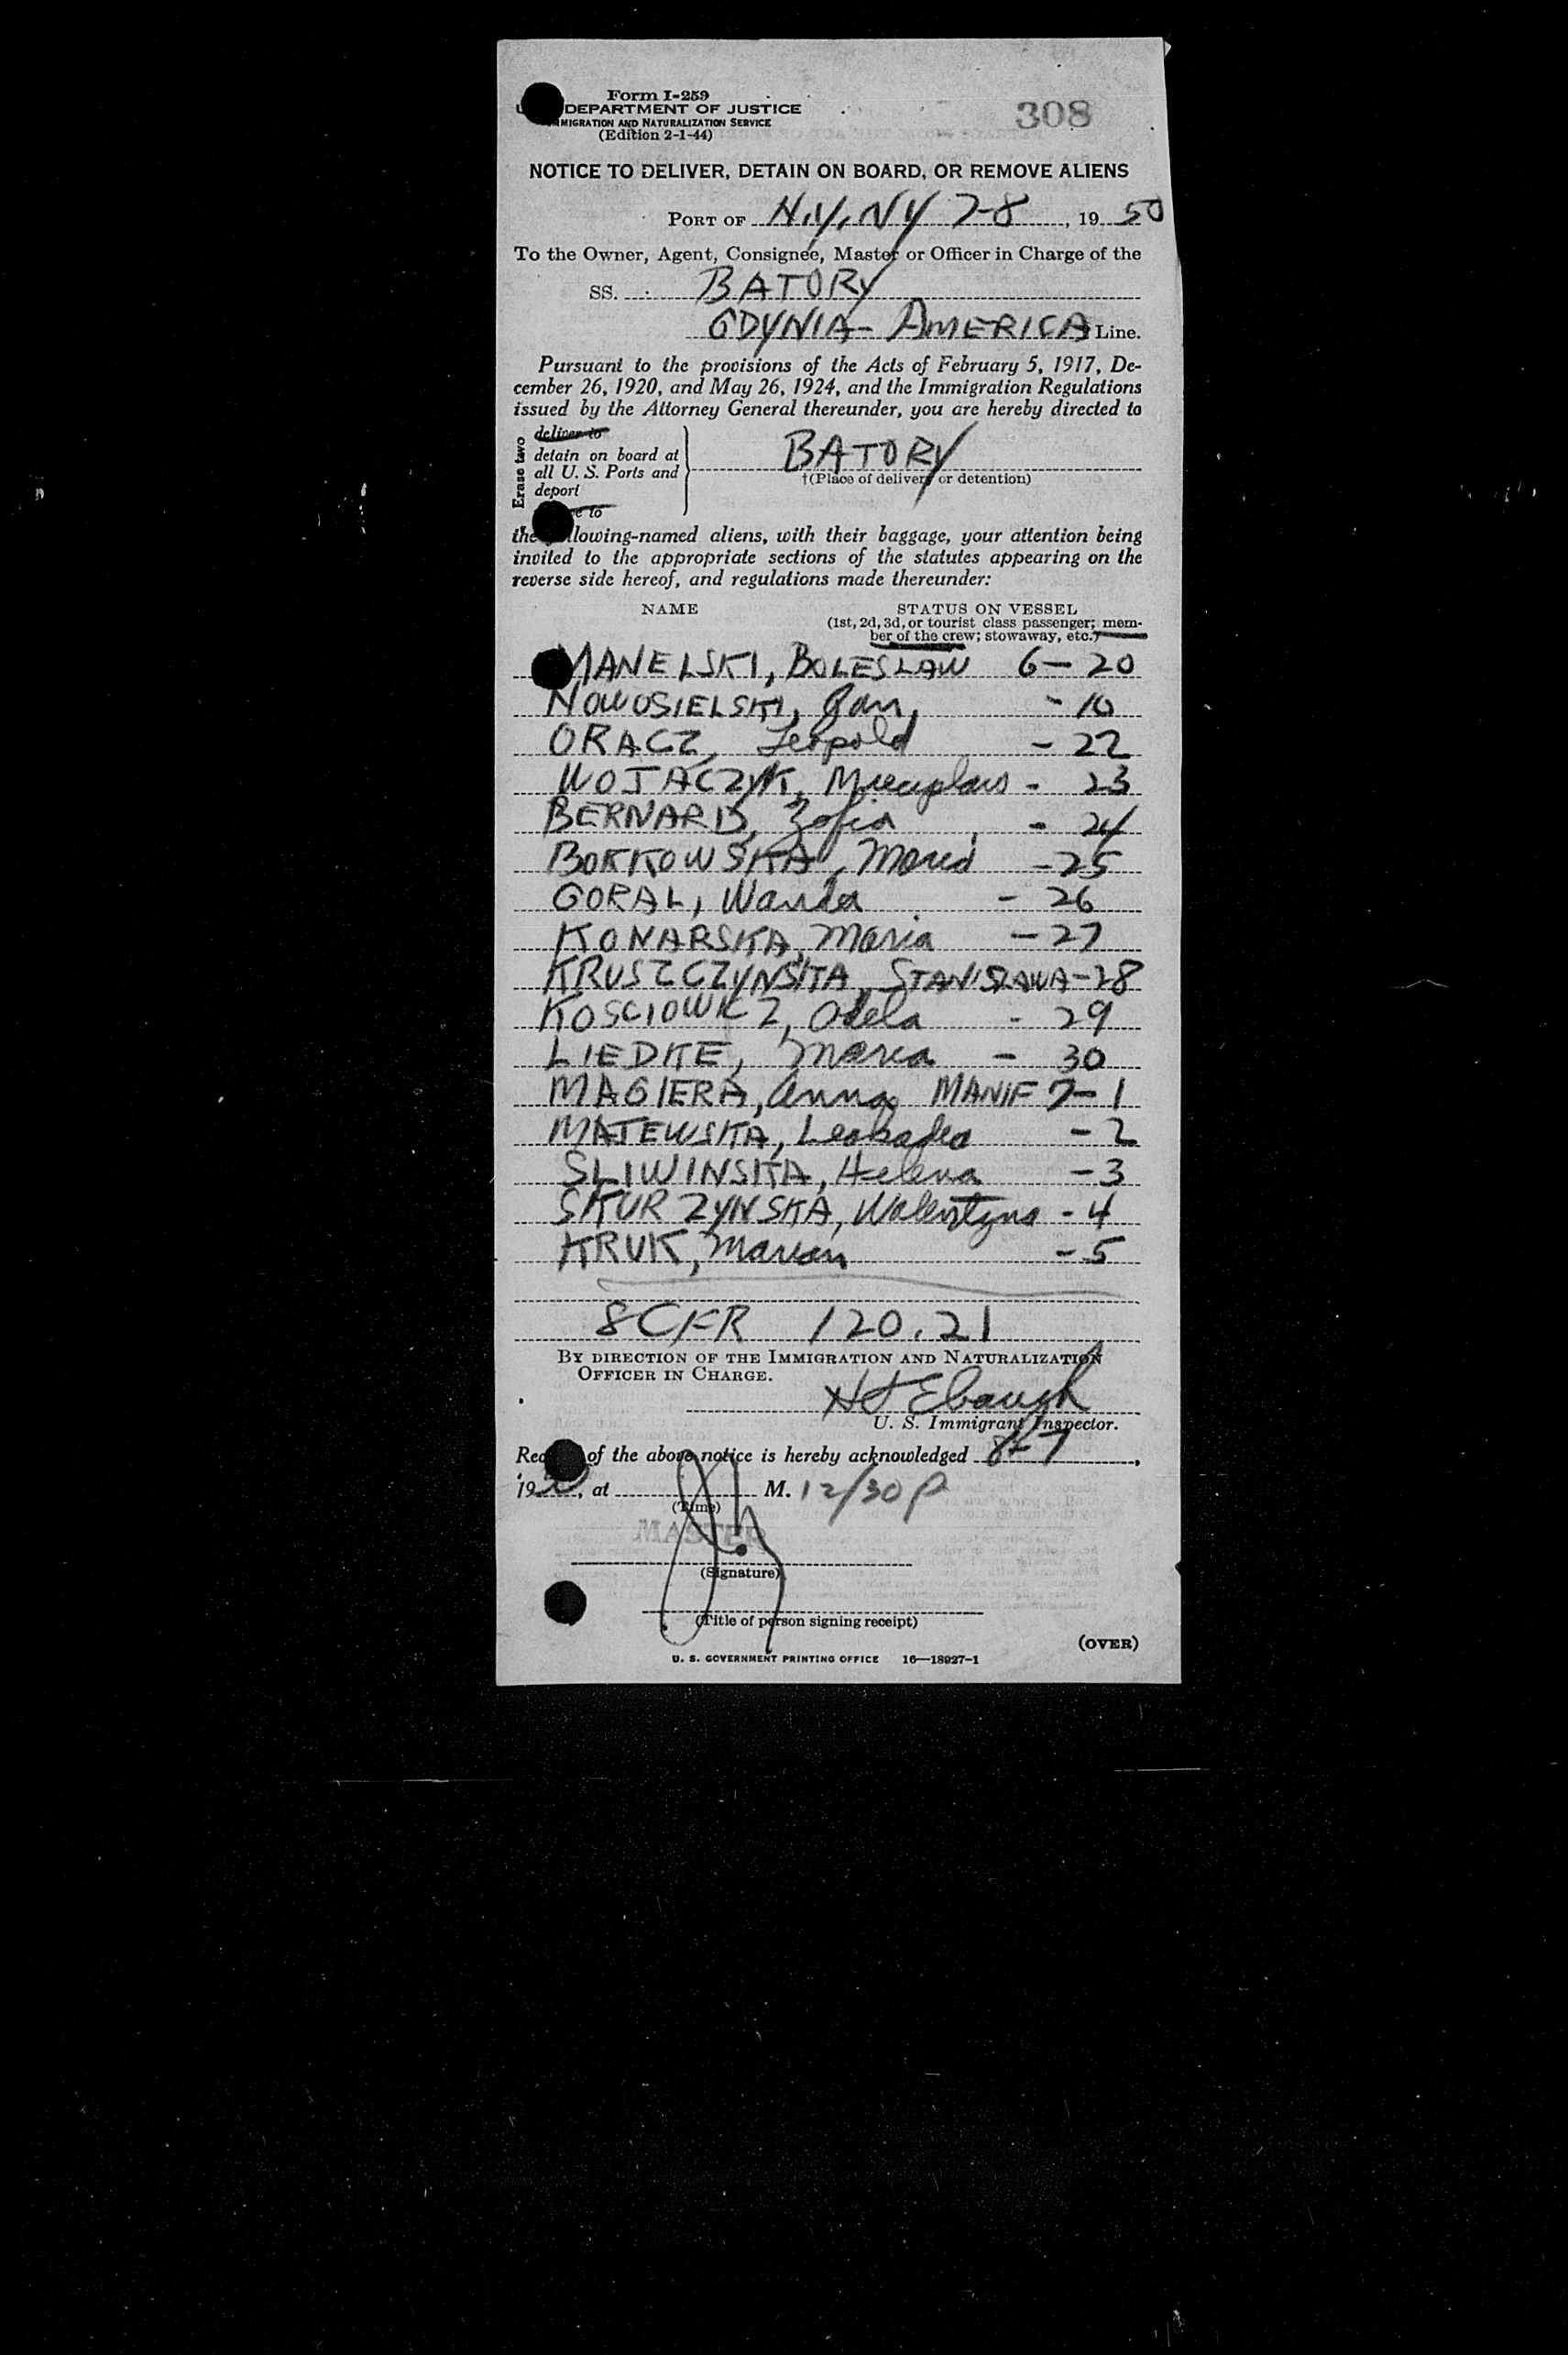 Form I-259
DEPARTMENT OF JUSTICE
IMMIGRATION AND NATURALIZATION SERVICE
(Edition 2-1-44)
308
NOTICE TO DELIVER, DETAIN ON BOARD, OR REMOVE ALIENS
PORT OF N.Y. NY 7-8, 19 50
To the Owner, Agent, Consignee, Master or Officer in Charge of the
SS. BATORY
GDYNIA-AMERICA Line.
Pursuant to the provisions of the Acts of February 5, 1917, De-
cember 26, 1920, and May 26, 1924, and the Immigration Regulations
issued by the Attorney General thereunder, you are hereby directed to
Erase two
deliver to
detain on board at
all U. S. Ports and
deport
to
BATORY
†(Place of delivery or detention)
the following-named aliens, with their baggage, your attention being
invited to the appropriate sections of the statutes appearing on the
reverse side hereof, and regulations made thereunder:
NAME STATUS ON VESSEL
(1st, 2d, 3d, or tourist class passenger; mem-
ber of the crew; stowaway, etc.)
MANELSKI, BOLESLAW 6-20
NOWOSIELSKI, Jan, -10
ORACZ, Leopold -22
WOJACZYK, - 23
BERNARD, Zofia - 24
BORKOWSKA, Maria -25
GORAL, Wanda - 26
KONARSKA, Maria -27
KRUSZCZYNSKA, STANISLAWA-28
KOSCIOWICZ, Adela - 29
LIEDKE, Maria - 30
MAGIERA, Anna MANIF 7-1
MAJEWSKA, Leokadia -2
SLIWINSKA, Helena -3
SKURZYNSKA, Walentyna -4
KRUK, Marian -5
8 CFR 120.21
BY DIRECTION OF THE IMMIGRATION AND NATURALIZATION
OFFICER IN CHARGE.
Ebaugh
U. S. Immigrant Inspector.
of the above notice is hereby acknowledged 8-7,
19, at M. 12/30 P
(Time)
MASTER
(Signature)
(Title of person signing receipt)
(OVER)
U. S. GOVERNMENT PRINTING OFFICE 16—18927-1